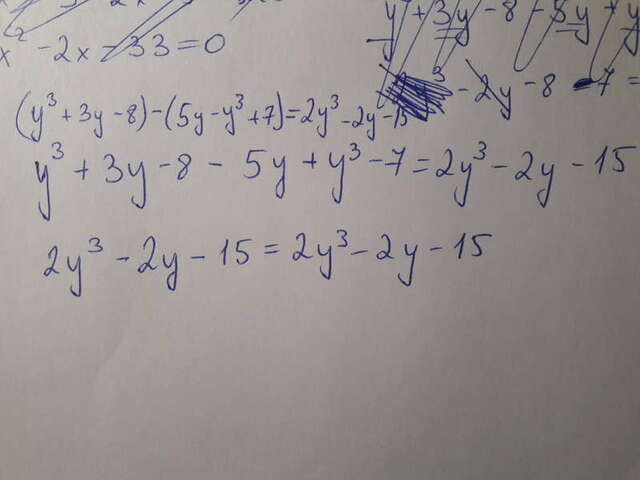 x² - 2x - 33 = 0
y³ + 3y - 8 - 5y + y
- 2y - 8 7 =
(y³ + 3y - 8) - (5y - y³ + 7) = 2y³ - 2y - 15
y³ + 3y - 8 - 5y + y³ - 7 = 2y³ - 2y - 15
2y³ - 2y - 15 = 2y³ - 2y - 15